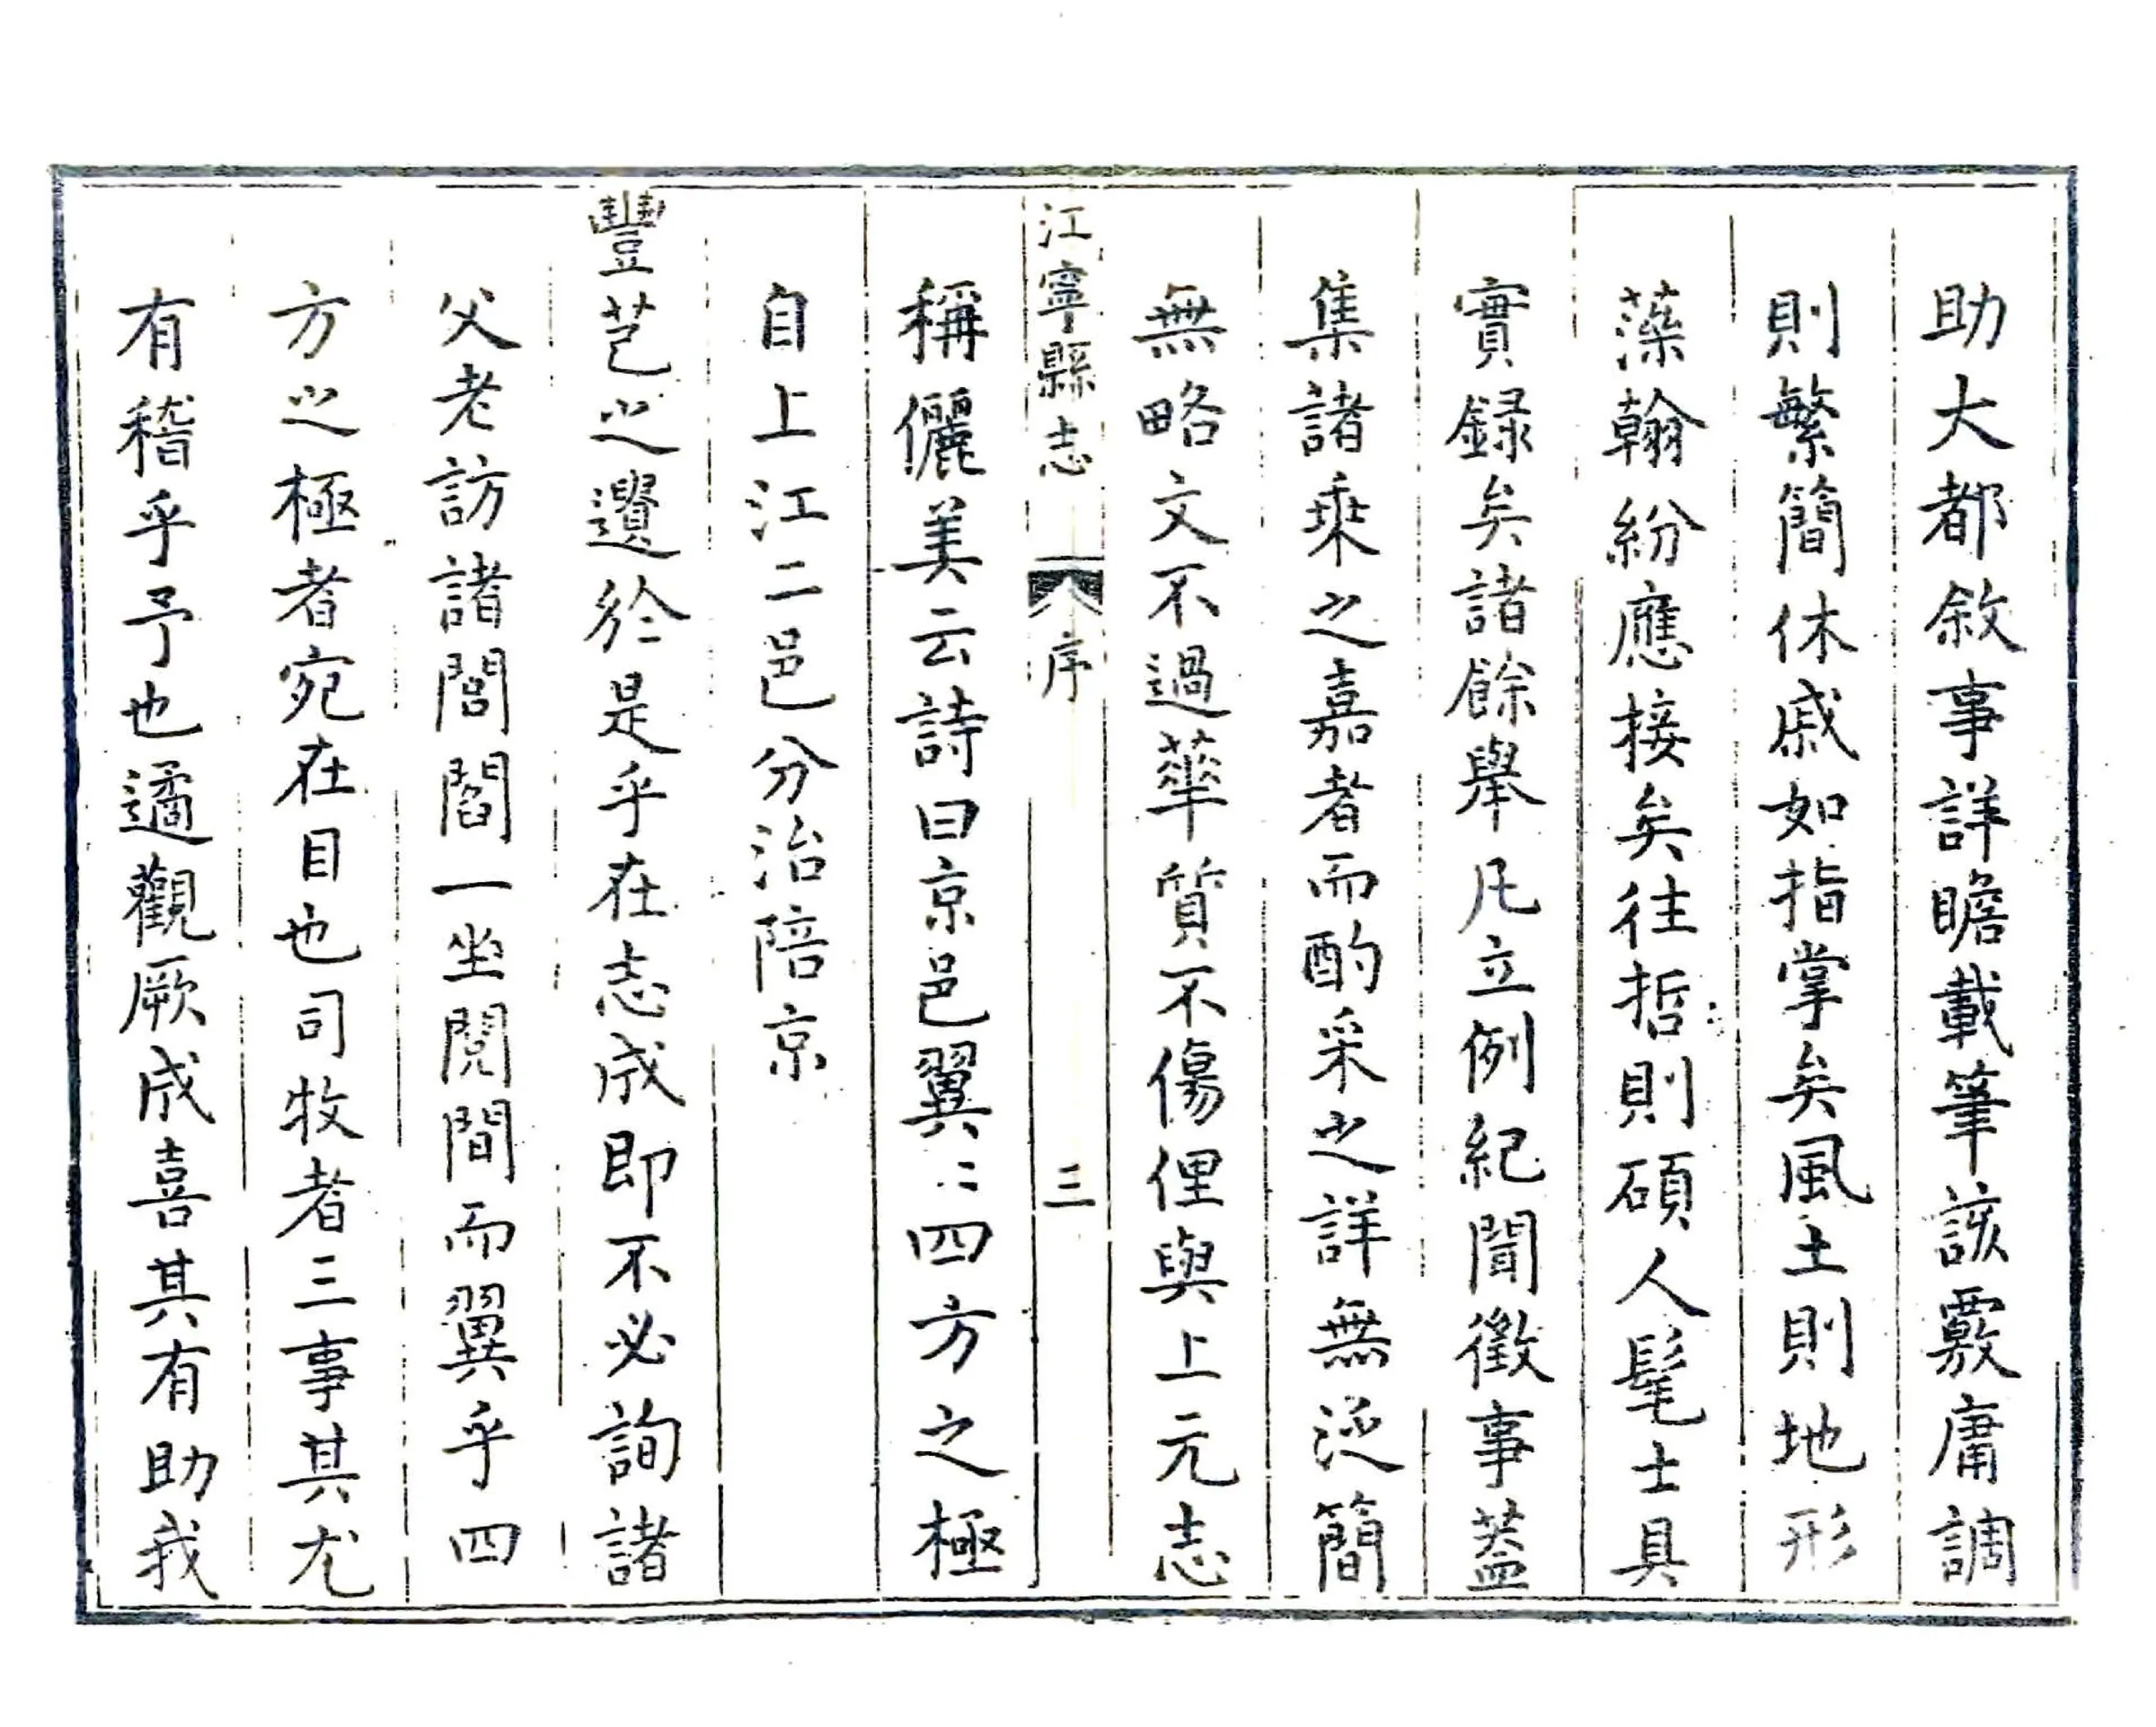 助大都敘事詳瞻載筆該覈庸調
則繁簡休戚如指掌矣風土則地形
藻翰紛應接矣往哲則碩人髦士具
實録矣諸餘舉凡立例紀聞徵事蓋
集諸乘之嘉者而酌采之詳無泛簡
無略文不過華質不傷俚與上元志
江寧縣志 序 三
稱儷美云詩曰京邑翼〻四方之極
自上江二邑分治陪京
豐芑之遺於是乎在志成即不必詢諸
父老訪諸閭閻一坐閱間而翼乎四
方之極者宛在目也司牧者三事其尤
有稽乎予也遹觀厥成喜其有助我